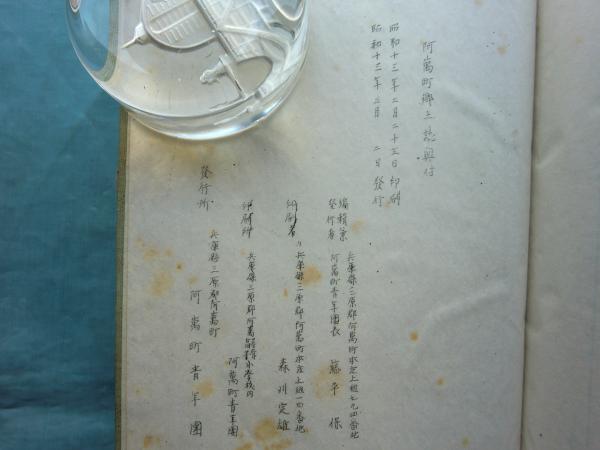 阿萬町鄉土誌奥付
昭和十三年二月二十五日印刷
昭和十三年三月 二日發行
編輯兼
發行者
兵庫縣三原郡阿萬町本庄上組七九四番地
阿萬町青年團長 藤平 保
印刷者
兵庫縣三原郡阿萬町本庄上組一四番地
森川定雄
印刷所
兵庫縣三原郡阿萬 小學校内
阿萬町青年團
發行所
兵庫縣三原郡阿萬町
阿萬町青年團